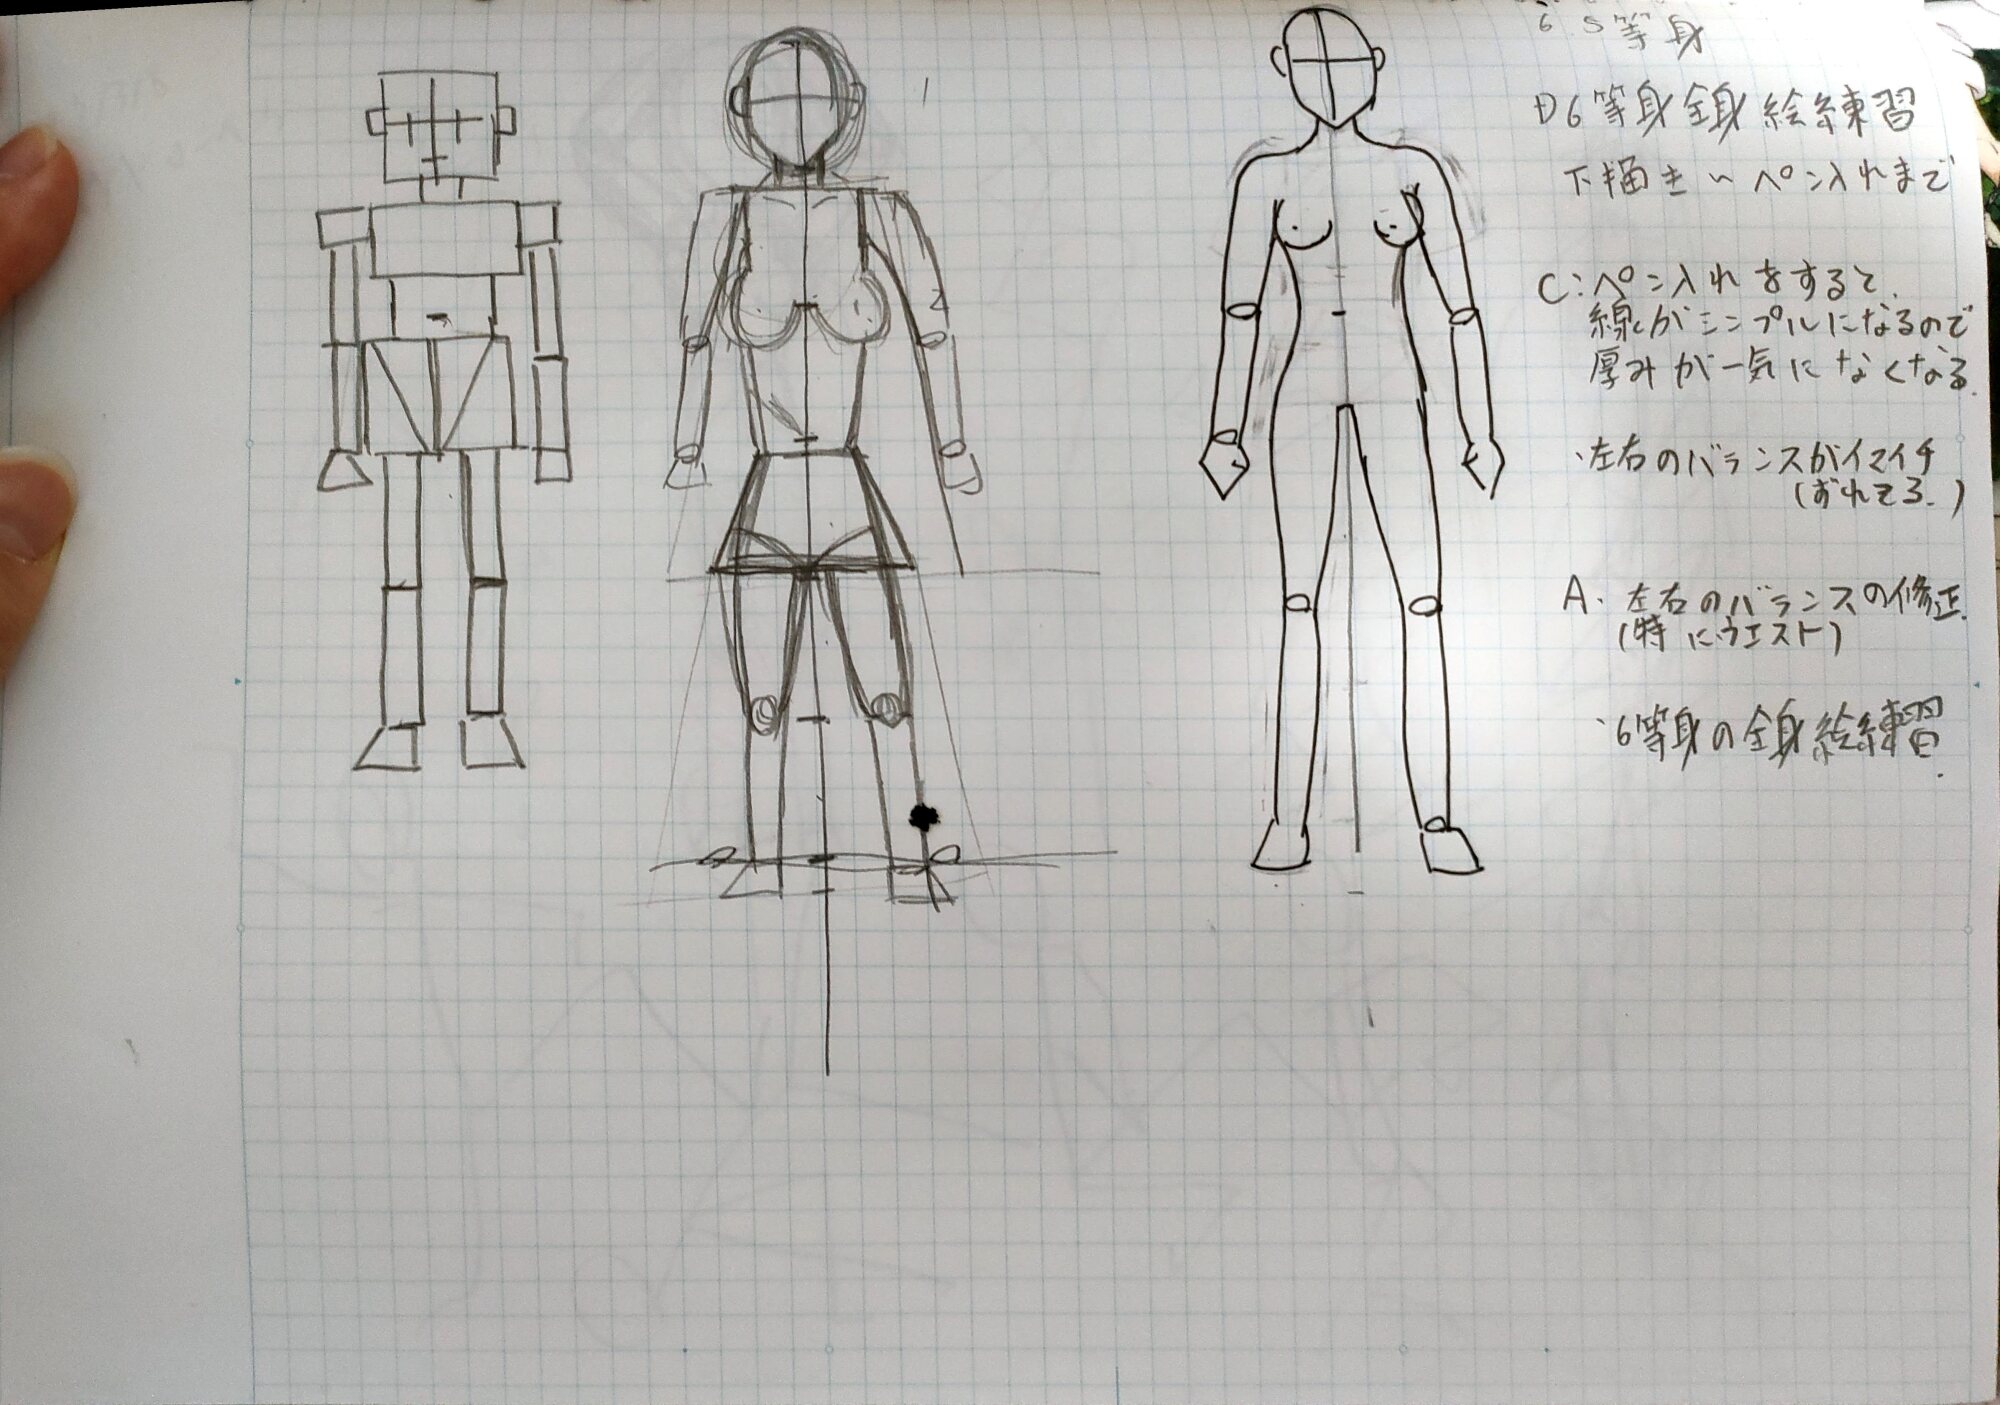 6.5等身
D6等身全身絵練習
下描き〜ペン入れまで
C:ペン入れをすると、
線がシンプルになるので
厚みが一気になくなる.
・左右のバランスがイマイチ
(ずれてる.)
A. 左右のバランスの修正.
(特にウエスト)
・6等身の全身絵練習.